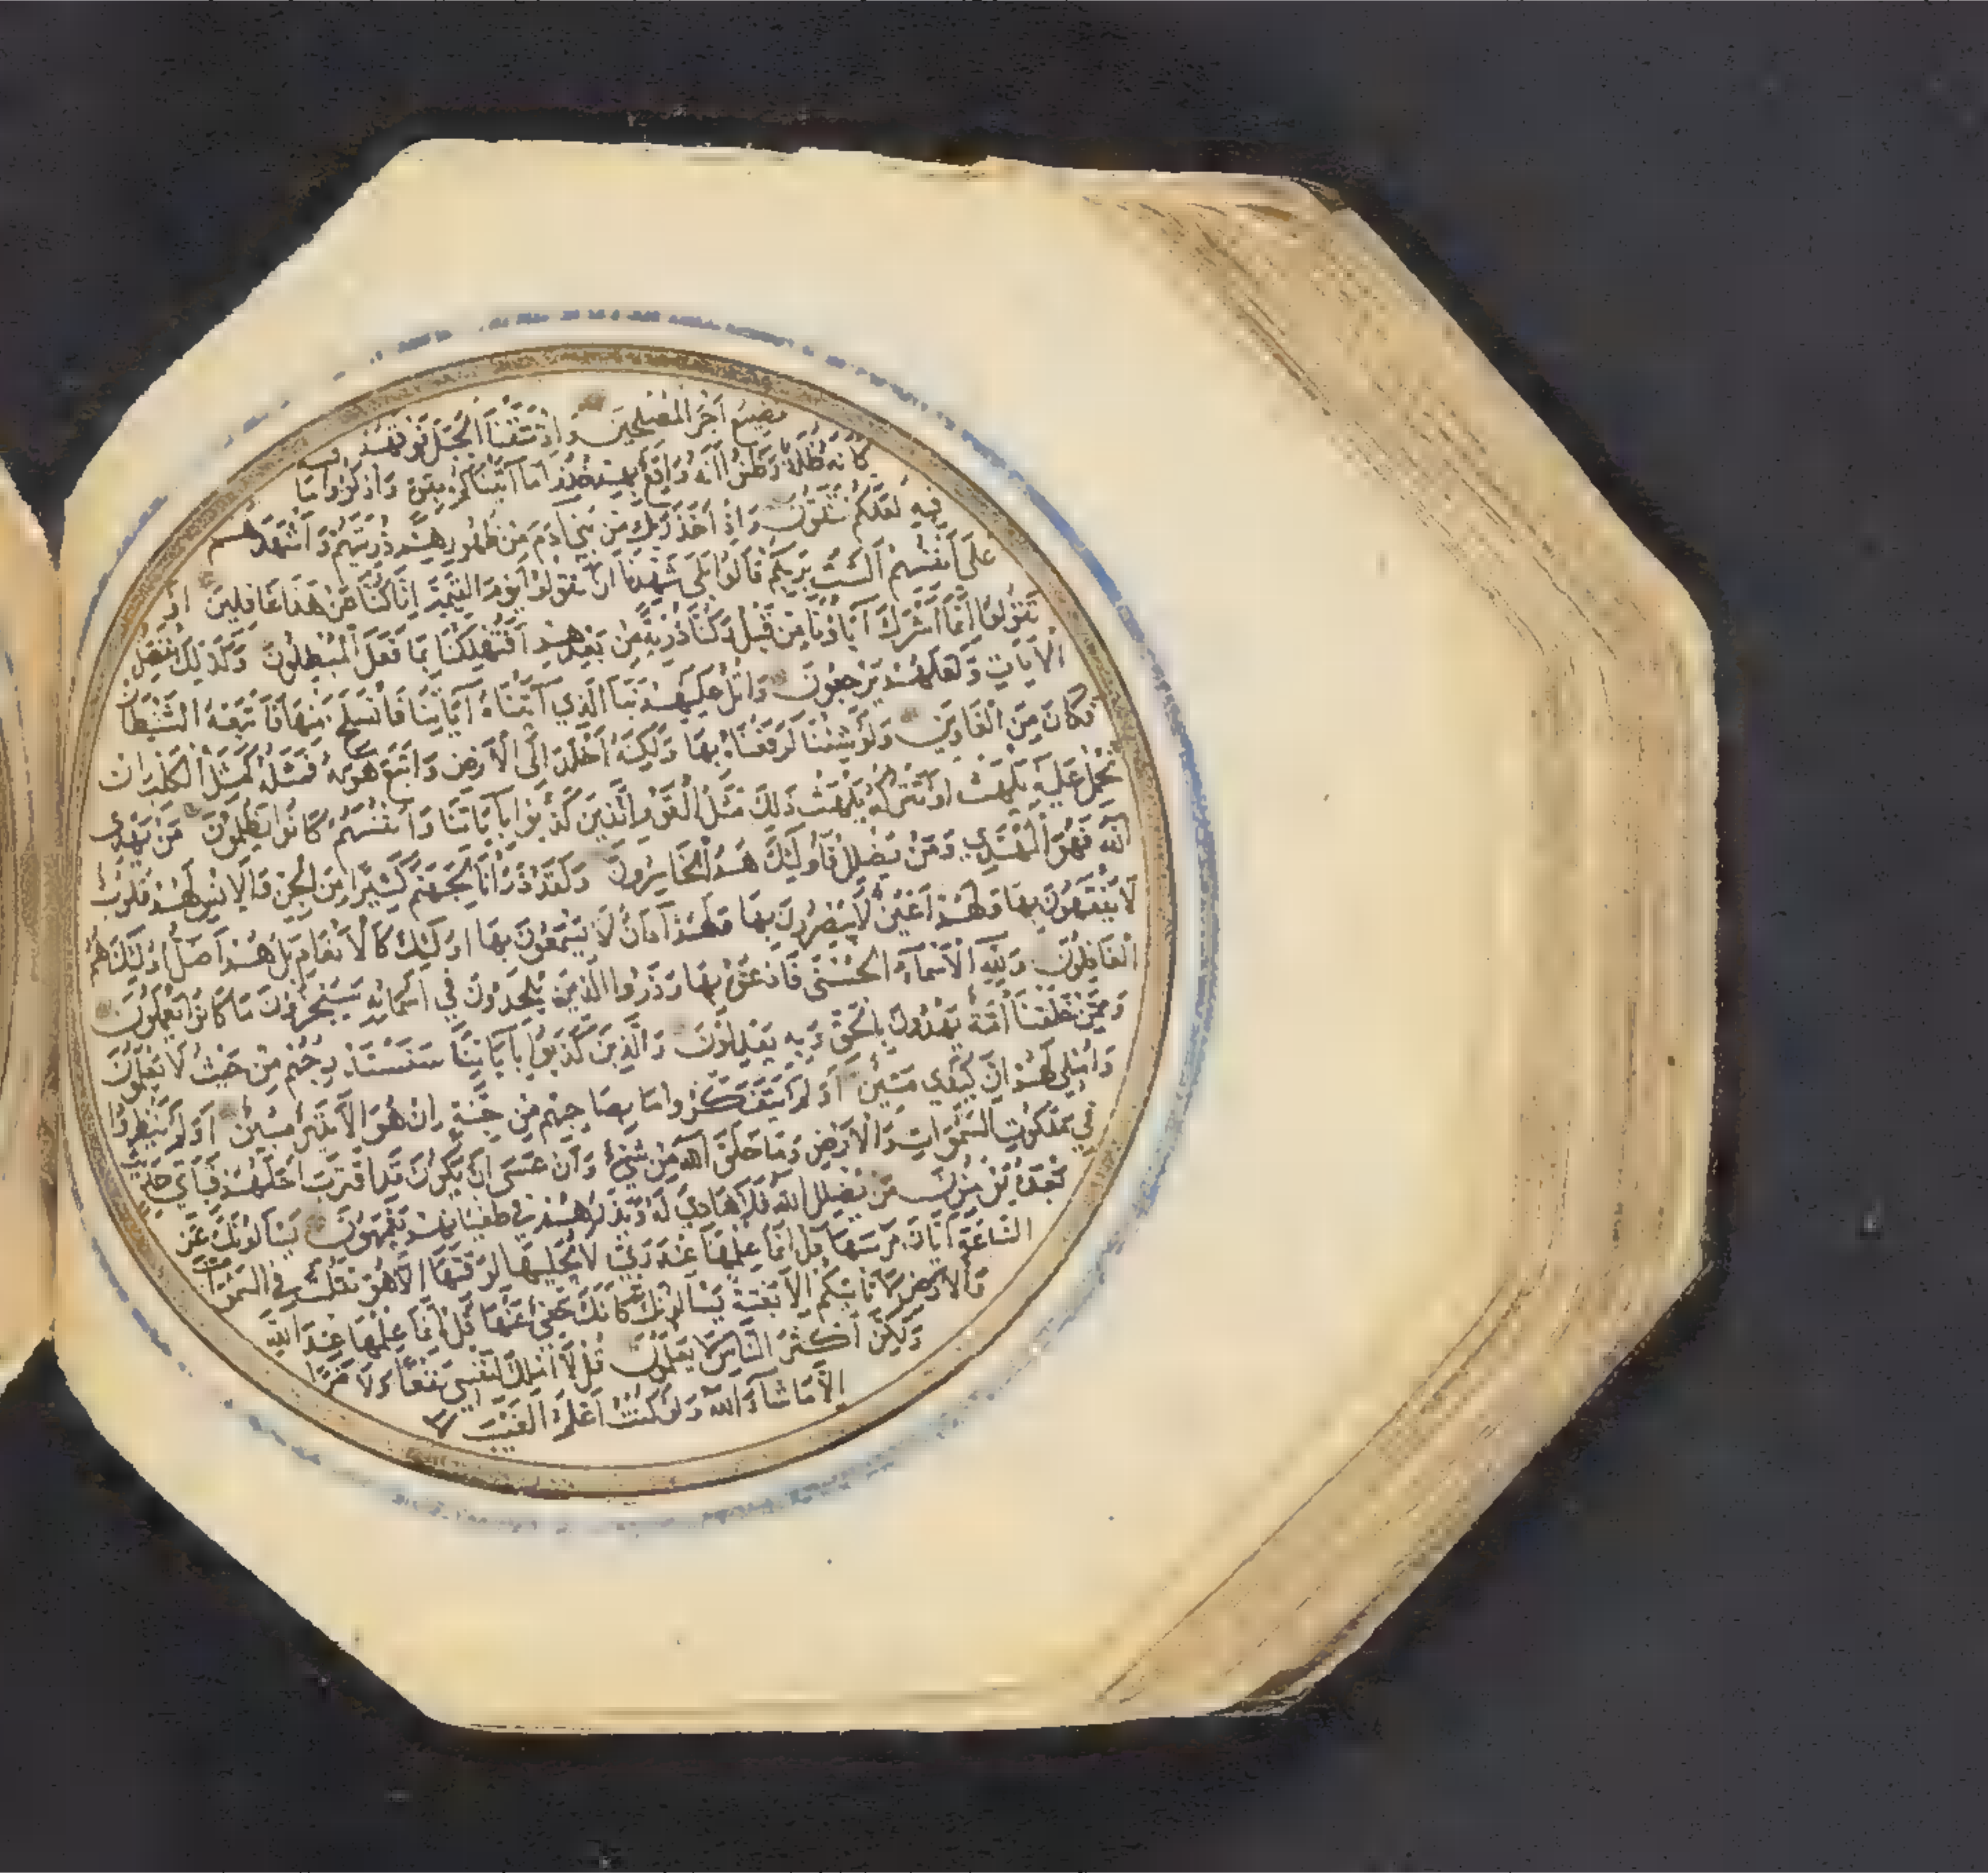 نضيع اجر المصلحين واذ نتقنا الجبل فوقهم
كانه ظلة وظنوا انه واقع بهم خذوا ما اتيناكم بقوة واذكروا ما
فيه لعلكم تتقون واذ اخذ ربك من بني ادم من ظهورهم ذريتهم واشهدهم
على انفسهم الست بربكم قالوا بلى شهدنا ان تقولوا يوم القيمة انا كنا عن هذا غافلين او
تقولوا انما اشرك آباؤنا من قبل وكنا ذرية من بعدهم افتهلكنا بما فعل المبطلون وكذلك نفصل
الآيات ولعلهم يرجعون واتل عليهم نبأ الذي آتيناه آياتنا فانسلخ منها فاتبعه الشيطان
فكان من الغاوين ولو شئنا لرفعناه بها ولكنه اخلد الى الارض واتبع هويه فمثله كمثل الكلب ان
تحمل عليه يلهث او تتركه يلهث ذلك مثل القوم الذين كذبوا بآياتنا وانفسهم كانوا يظلمون من يهدى
الله فهو المهتدي ومن يضلل فاولئك هم الخاسرون ولقد ذرأنا لجهنم كثيرا من الجن والانس لهم قلوب
لا يفقهون بها ولهم اعين لا يبصرون بها ولهم آذان لا يسمعون بها اولئك كالانعام بل هم اضل اولئك هم
الغافلون ولله الاسماء الحسنى فادعوه بها وذروا الذين يلحدون في اسمائه سيجزون ما كانوا يعملون
وممن خلقنا امة يهدون بالحق وبه يعدلون والذين كذبوا بآياتنا سنستدرجهم من حيث لا يعلمون
واملي لهم ان كيدي متين اولم يتفكروا ما بصاحبهم من جنة ان هو الا نذير مبين اولم ينظروا
في ملكوت السموات والارض وما خلق الله من شيء وان عسى ان يكون قد اقترب اجلهم فباي حديث
بعده يؤمنون من يضلل الله فلا هادي له ويذرهم في طغيانهم يعمهون يسألونك عن
الساعة ايان مرسيها قل انما علمها عند ربي لا يجليها لوقتها الا هو ثقلت في السموات
والارض لا تأتيكم الا بغتة يسألونك كانك حفي عنها قل انما علمها عند الله
ولكن اكثر الناس لا يعلمون قل لا املك لنفسي نفعا ولا ضرا
الا ما شاء الله ولو كنت اعلم الغيب